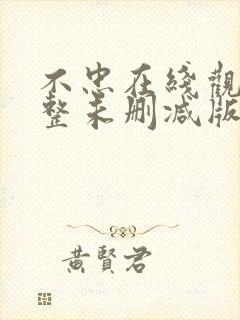 不忠在綫觀
整未刪減版
黃賢君